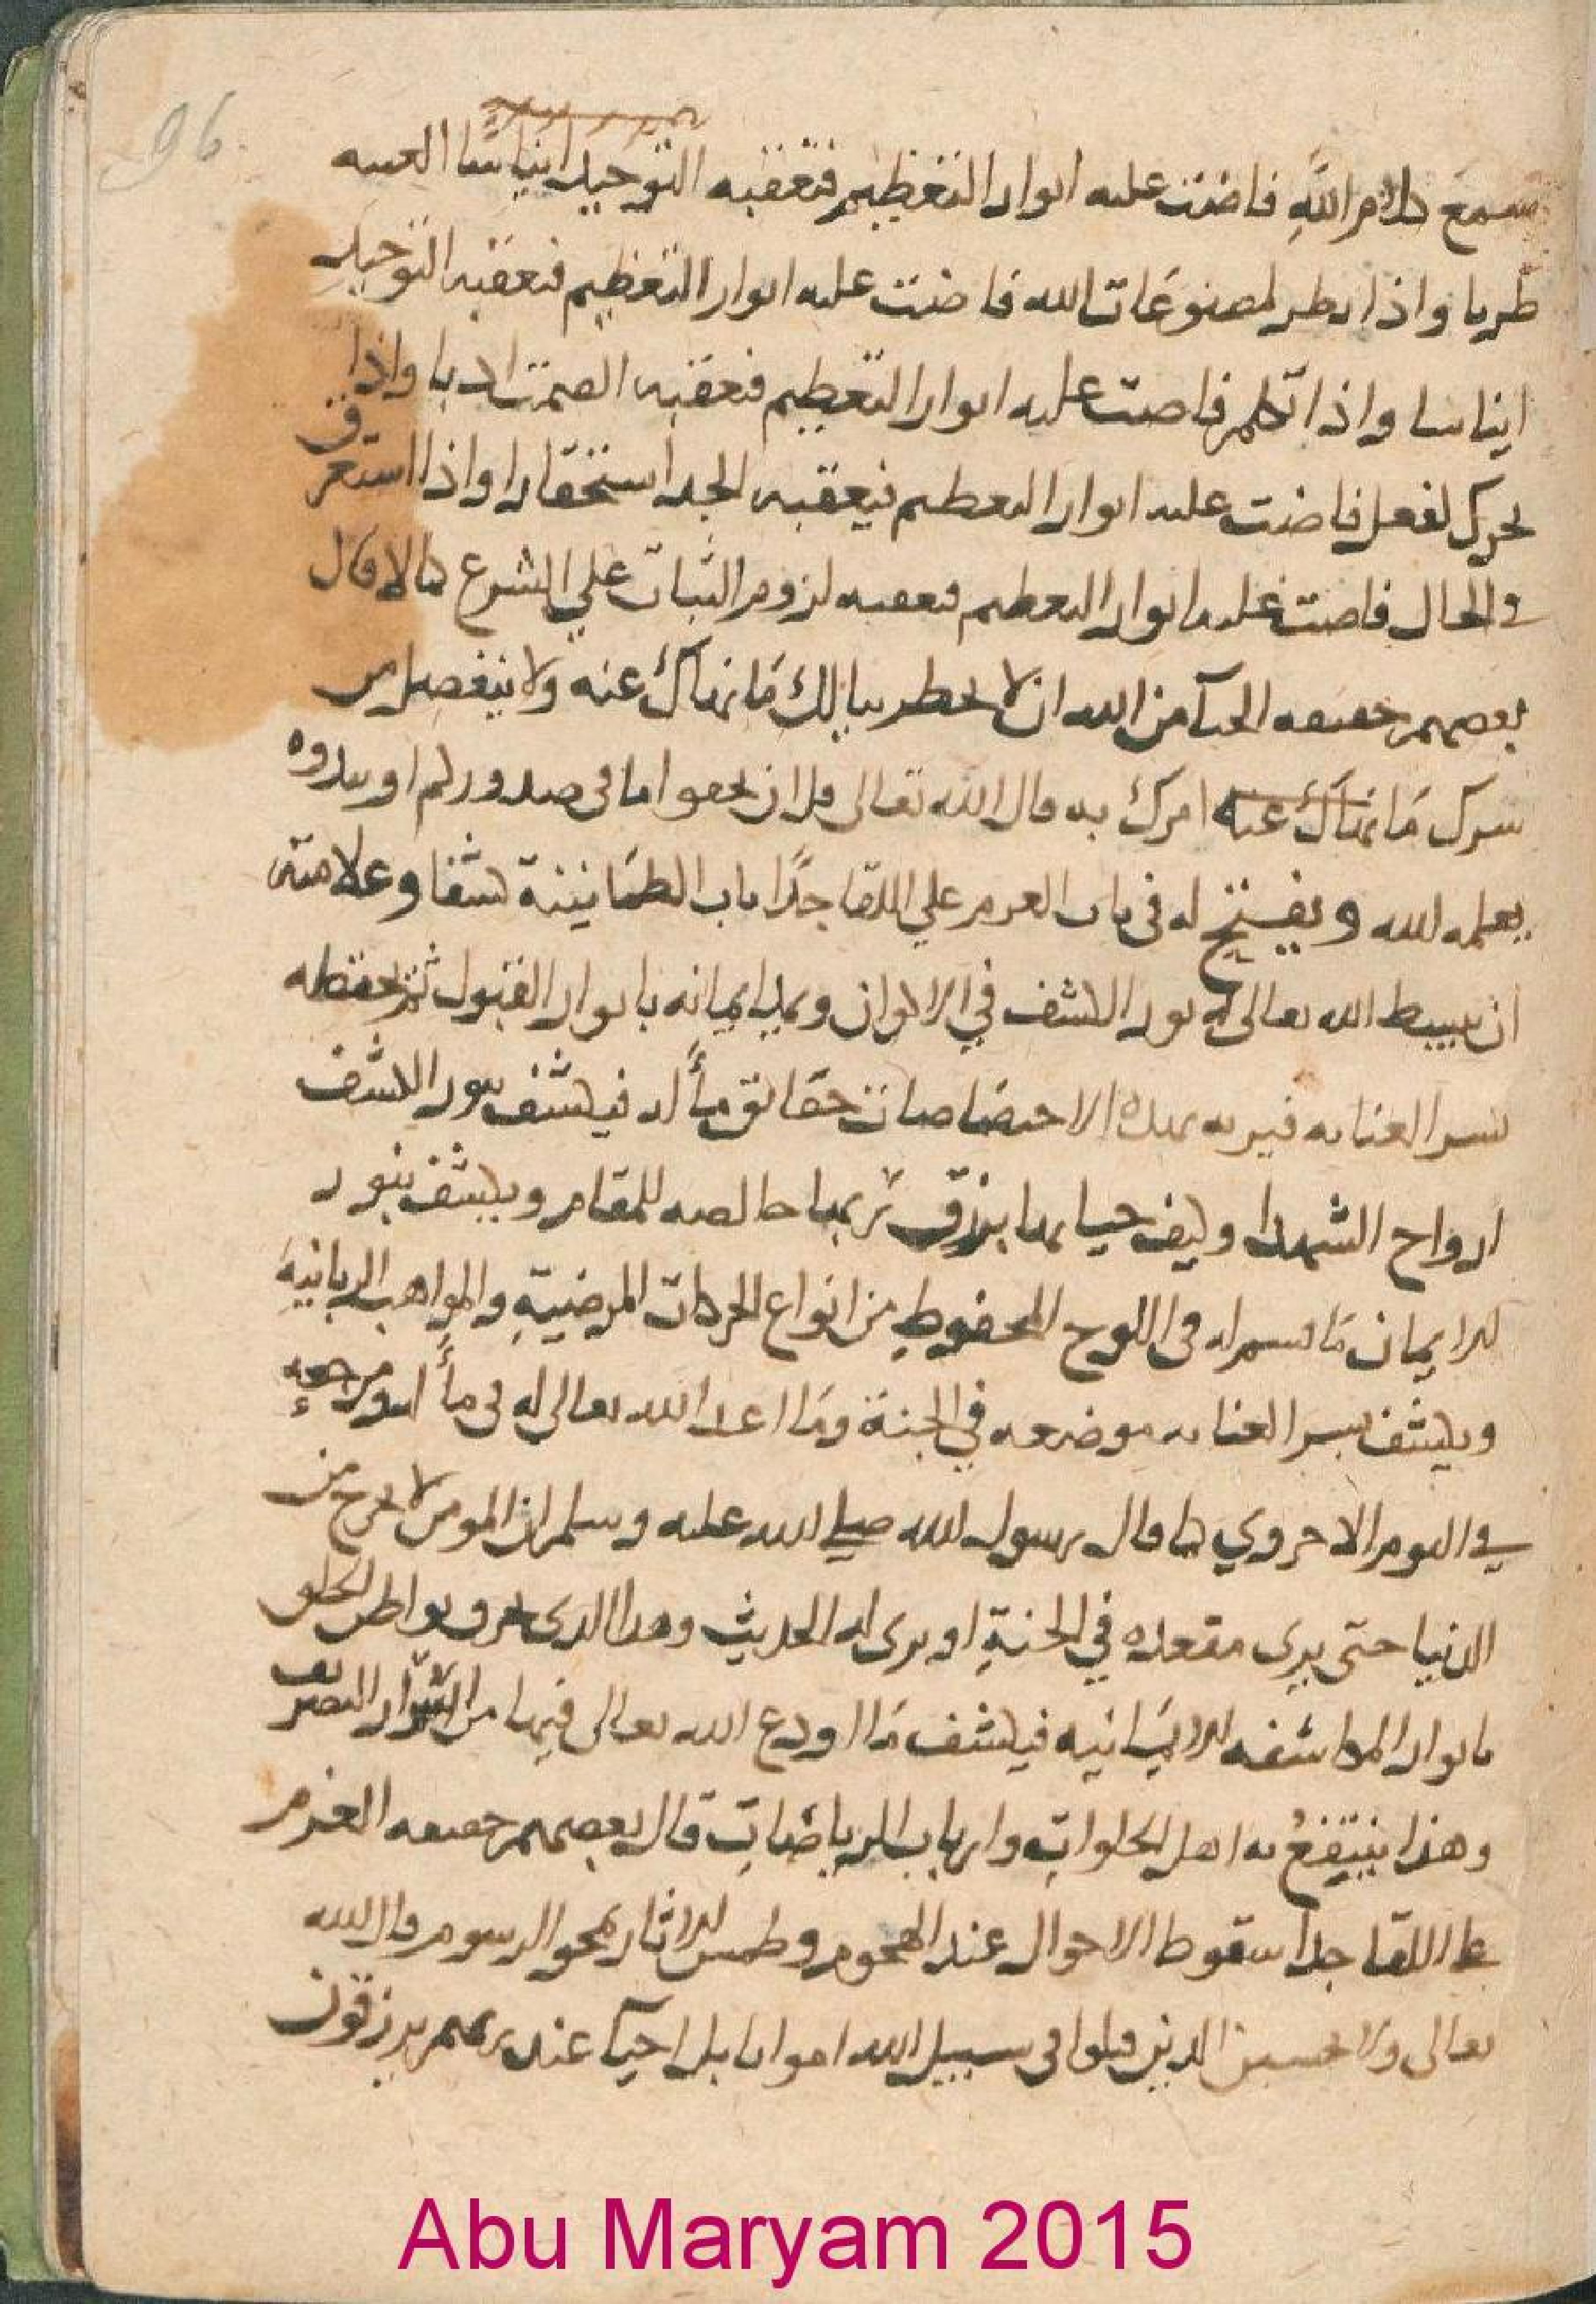 96
سمع كلام الله فاضت عليه انوار التعظيم فتعقبه التوحيد ايناسا
طربا واذا نظر لمصنوعات الله فاضت عليه انوار التعظيم فتعقبه التوحيد
ايناسا واذا تكلم فاضت عليه انوار التعظيم فتعقبه الصمت ادبا واذا
تحرك لفعل فاضت عليه انوار التعظيم فيعقبه الجد استحقارا واذا استغرق
في الحال فاضت عليه انوار التعظيم فتعقبه لزوم الثبات علي الشرع كمالا قال
بعضهم حقيقه الحيآ من الله ان لا يخطر ببالك ما نهاك عنه ولا ينفصل من
سرك ما نهاك عنه امرك به قال الله تعالى قل ان تخفوا ما في صدوركم او تبدوه
يعلمه الله ويفتح له في باب العزم علي اللقا جدا باب الطمانينة كشفا وعلامته
ان يبسط الله تعالى له نور الكشف في الاكوان ويمد ايمانه بانوار القبول ثم يحفظه
بسر العنايه فيريه بهذه الاختصاصات حقائق مأله فيكشف بنور الكشف
ارواح الشهدا وكيف حياتها بالرزق ثم بها خالصه للمقام ويكشف بنور
الايمان ما قسم له في اللوح المحفوظ من انواع الحركات المرضية والمواهب الربانية
ويكشف بسر العنايه موضعه في الجنة وما اعد الله تعالى له في مأله ومرجعه
في اليوم الاخروي كما قال رسول الله صلي الله عليه وسلم ان المومن لا يخرج من
الدنيا حتى يرى مقعده في الجنة او يرى له الحديث وهذا الذي يخرق بواطن الخلق
بانوار المكاشفه الايمانيه فيكشف ما اودع الله تعالى فيها من اسرار التصريف
وهذا ينتفع به اهل الخلوات وارباب الرياضات قال بعضهم حقيقه العزم
علي اللقا جدا سقوط الاحوال عند الهجوم وطمس الاثار بمحو الرسوم قال الله
تعالى ولا تحسبن الذين قتلوا في سبيل الله امواتا بل احيآ عند ربهم يرزقون
Abu Maryam 2015